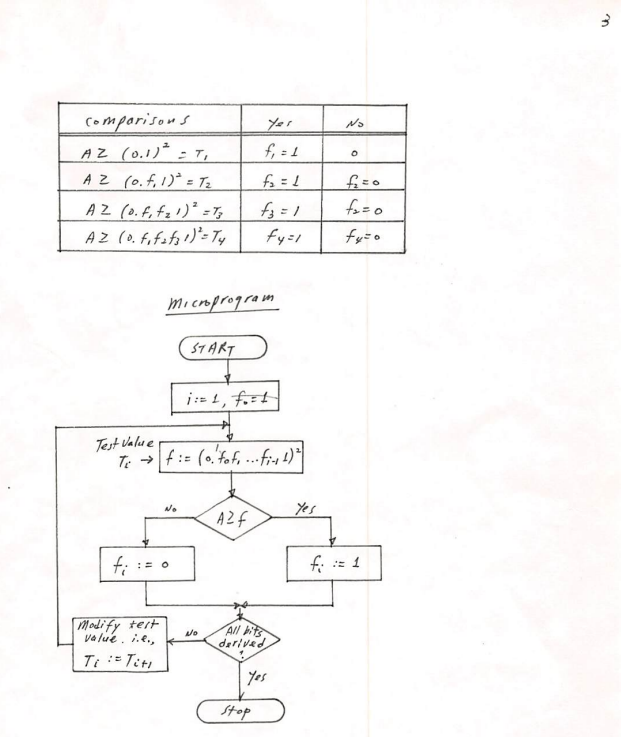 3
Comparisons Yes No
A ≥ (0.1)² = T₁ f₁ = 1 0
A ≥ (0.f₁1)² = T₂ f₂ = 1 f₂ = 0
A ≥ (0.f₁f₂1)² = T₃ f₃ = 1 f₂ = 0
A ≥ (0.f₁f₂f₃1)² = T₄ f₄ = 1 f₄ = 0
Microprogram
START
i := 1, f₀ = 1
Test Value
Tᵢ → f := (0.f₀f₁ ...fᵢ₋₁ 1)²
No A ≥ f Yes
fᵢ := 0 fᵢ := 1
Modify test
value. i.e.,
Tᵢ := Tᵢ₊₁
No
All bits
derived
?
Yes
Stop